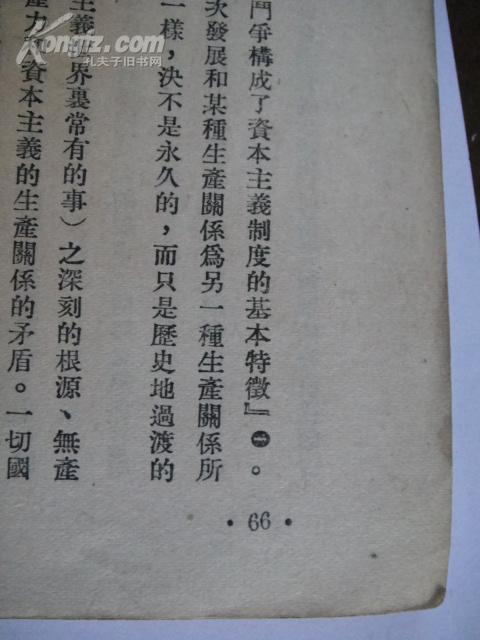 鬥爭構成了資本主義制度的基本特徵』㊀。
次發展和某種生產關係爲另一種生產關係所
一樣，決不是永久的，而只是歷史地過渡的
主義世界裏常有的事）之深刻的根源、無產
產力與資本主義的生產關係的矛盾。一切國
•66•
Kongfz.com
孔夫子旧书网